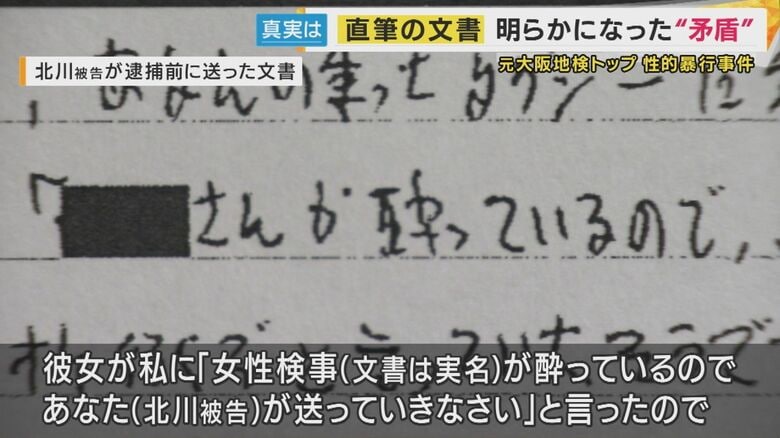 真実は 直筆の文書 明らかになった“矛盾”
北川被告が逮捕前に送った文書
元大阪地検トップ 性的暴行事件
、あなたの乗ったタクシー
「 さんが酔っているので、
彼女が私に「女性検事(文書は実名)が酔っているので
あなた(北川被告)が送っていきなさい」と言ったので